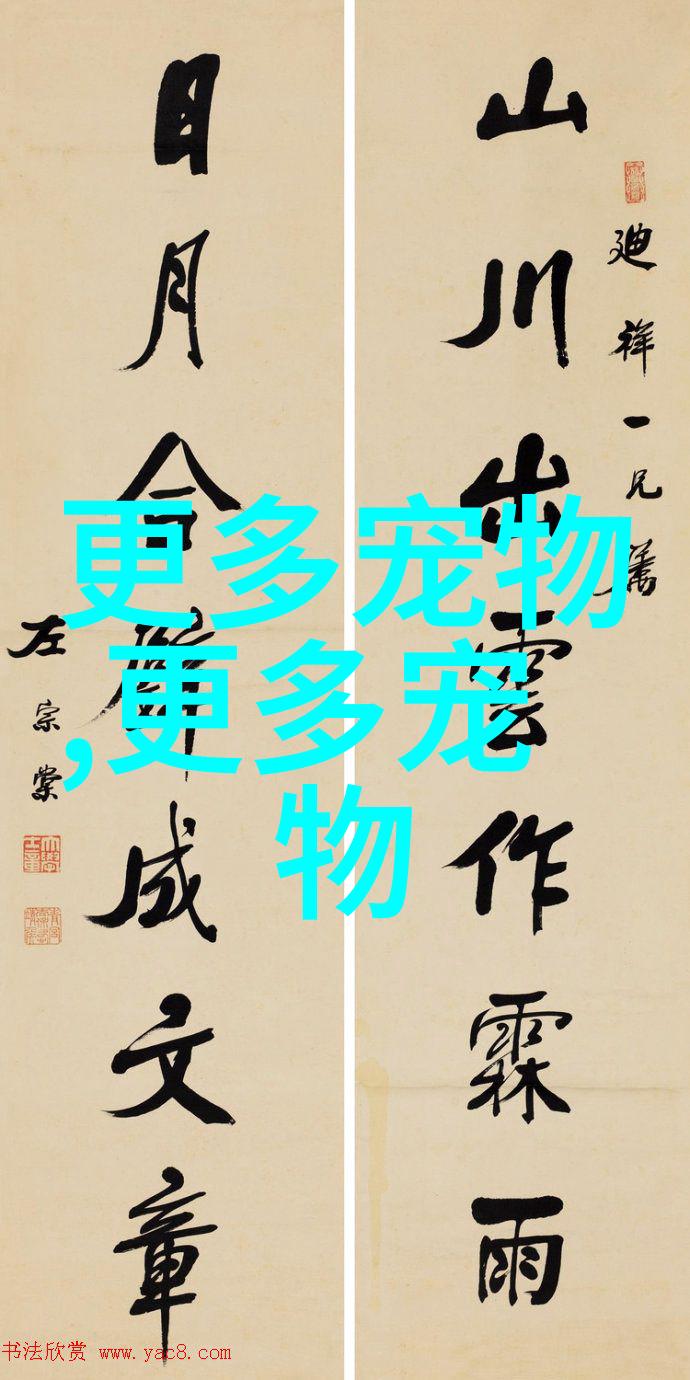 山川出雲作霖雨
廸祥一兄
日月合璧成文章
左宗棠
更多宠物
,更多宠
物
书法欣赏 www.yac8.com